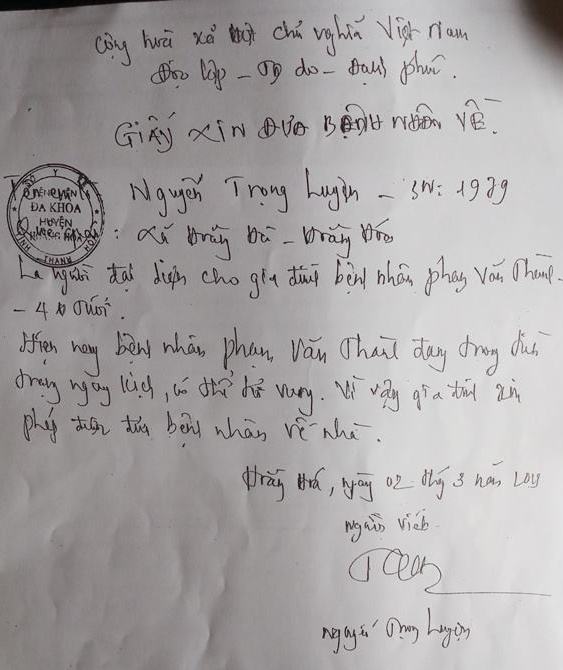 Cộng hoà xã hội chủ nghĩa Việt Nam
Độc lập - Tự do - Hạnh phúc.
GIẤY XIN ĐƯA BỆNH NHÂN VỀ.
Nguyễn Trọng Luyện - SN: 1979
SỞ Y TẾ
BỆNH VIỆN
ĐA KHOA
HUYỆN
THANH HÓA
: Xã Hoằng Đ - Hoằng Hóa
Là người đại diện cho gia đình bệnh nhân phạm Văn Thành -
- 4 tuổi.
Hiện nay bệnh nhân phạm Văn Thành đang trong tình
trạng nguy kịch, có thể tử vong. Vì vậy gia đình xin
phép được đưa bệnh nhân về nhà.
Hoằng Hoá, ngày 02 tháng 3 năm
người viết
nguyễn Trọng Luyện